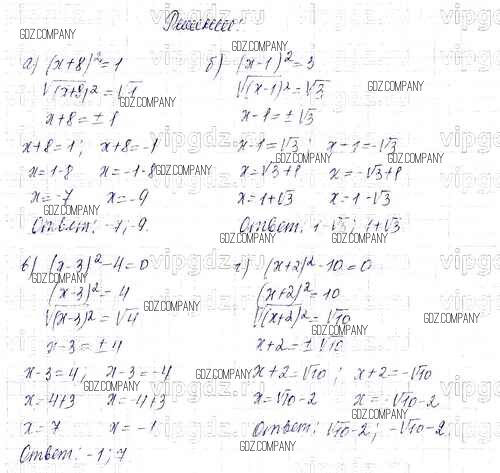 Решение:
а) (x+8)²=1
√(x+8)²=√1
x+8=±1
x+8=1; x+8=-1
x=1-8 x=-1-8
x=-7 x=-9
Ответ: -7; -9.
б) (x-1)²=3
√(x-1)²=√3
x-1=±√3
x-1=√3; x-1=-√3
x=√3+1 x=-√3+1
x=1+√3 x=1-√3
Ответ: 1-√3; 1+√3
в) (x-3)²-4=0
(x-3)²=4
√(x-3)²=√4
x-3=±4
x-3=4; x-3=-4
x=4+3 x=-4+3
x=7 x=-1
Ответ: -1; 7
г) (x+2)²-10=0
(x+2)²=10
√(x+2)²=√10
x+2=±√10
x+2=√10; x+2=-√10
x=√10-2 x=-√10-2
Ответ: √10-2; -√10-2;
GDZ.COMPANY
vipgdz.ru